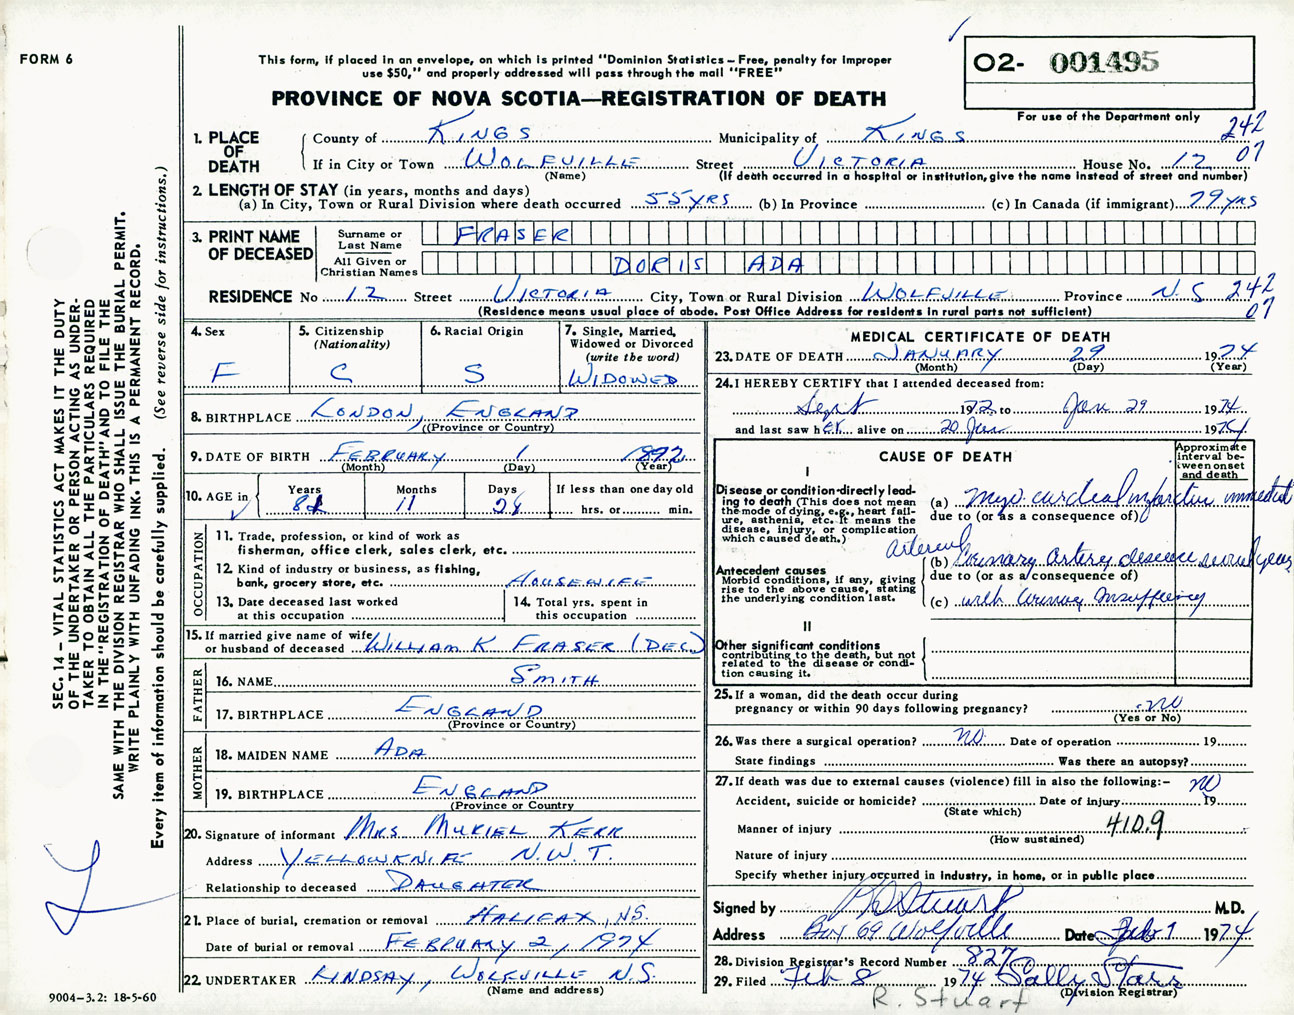 FORM 6
This form, if placed in an envelope, on which is printed "Dominion Statistics – Free, penalty for improper
use $50," and properly addressed will pass through the mail "FREE"
O2- 001495
PROVINCE OF NOVA SCOTIA—REGISTRATION OF DEATH
For use of the Department only
1. PLACE OF DEATH County of KINGS Municipality of KINGS 242
If in City or Town WOLFVILLE Street VICTORIA House No. 12 07
(Name) (If death occurred in a hospital or institution, give the name instead of street and number)
2. LENGTH OF STAY (in years, months and days)
(a) In City, Town or Rural Division where death occurred 55 YRS (b) In Province (c) In Canada (if immigrant) 79 yrs
3. PRINT NAME OF DECEASED Surname or Last Name FRASER
All Given or Christian Names DORIS ADA
RESIDENCE No 12 Street VICTORIA City, Town or Rural Division WOLFVILLE Province N.S 242
(Residence means usual place of abode. Post Office Address for residents in rural parts not sufficient) 07
4. Sex F
5. Citizenship (Nationality) C
6. Racial Origin S
7. Single, Married, Widowed or Divorced (write the word) WIDOWED
8. BIRTHPLACE LONDON, ENGLAND
(Province or Country)
9. DATE OF BIRTH FEBRUARY 1 1892
(Month) (Day) (Year)
10. AGE in Years Months Days If less than one day old
11 28 hrs. or min.
OCCUPATION
11. Trade, profession, or kind of work as
fisherman, office clerk, sales clerk, etc.
12. Kind of industry or business, as fishing,
bank, grocery store, etc. HOUSEWIFE
13. Date deceased last worked
at this occupation
14. Total yrs. spent in
this occupation
15. If married give name of wife
or husband of deceased WILLIAM K FRASER (DEC.)
FATHER
16. NAME SMITH
17. BIRTHPLACE ENGLAND
(Province or Country)
MOTHER
18. MAIDEN NAME ADA
19. BIRTHPLACE ENGLAND
(Province or Country
20. Signature of informant MRS MURIEL KERR
Address YELLOWKNIFE N.W.T.
Relationship to deceased DAUGHTER
21. Place of burial, cremation or removal HALIFAX, N.S.
Date of burial or removal FEBRUARY 2, 1974
22. UNDERTAKER LINDSAY, WOLFVILLE N.S.
(Name and address)
MEDICAL CERTIFICATE OF DEATH
23. DATE OF DEATH JANUARY 29 1974
(Month) (Day) (Year)
24. I HEREBY CERTIFY that I attended deceased from:
Sept 1972 to Jan 29 1974
and last saw her alive on 20 Jan 1974
CAUSE OF DEATH
Approximate
interval be-
tween onset
and death
I
Disease or condition directly lead-
ing to death (This does not mean
the mode of dying, e.g., heart fail-
ure, asthenia, etc. It means the
disease, injury, or complication
which caused death.)
(a) Myocardial infarction immediate
due to (or as a consequence of)
Antecedent causes
Morbid conditions, if any, giving
rise to the above cause, stating
the underlying condition last.
(b) Coronary Artery disease several years
due to (or as a consequence of)
(c) with Coronary Insufficiency
II
Other significant conditions
contributing to the death, but not
related to the disease or condi-
tion causing it.
25. If a woman, did the death occur during
pregnancy or within 90 days following pregnancy? no
(Yes or No)
26. Was there a surgical operation? no Date of operation 19
State findings Was there an autopsy?
27. If death was due to external causes (violence) fill in also the following:– no
Accident, suicide or homicide? Date of injury 19
(State which)
Manner of injury 410.9
(How sustained)
Nature of injury
Specify whether injury occurred in industry, in home, or in public place
Signed by Stuart M.D.
Address Box 69 Wolfville Date Feb 1 1974
28. Division Registrar's Record Number 827
29. Filed Feb 8 1974 Sally Starr
(Division Registrar)
R. Stuart
SEC. 14 – VITAL STATISTICS ACT MAKES IT THE DUTY
OF THE UNDERTAKER OR PERSON ACTING AS UNDER-
TAKER TO OBTAIN ALL THE PARTICULARS REQUIRED
IN THE "REGISTRATION OF DEATH" AND TO FILE THE
SAME WITH THE DIVISION REGISTRAR WHO SHALL ISSUE THE BURIAL PERMIT.
WRITE PLAINLY WITH UNFADING INK. THIS IS A PERMANENT RECORD.
Every item of information should be carefully supplied. (See reverse side for instructions.)
9004–3.2: 18-5-60